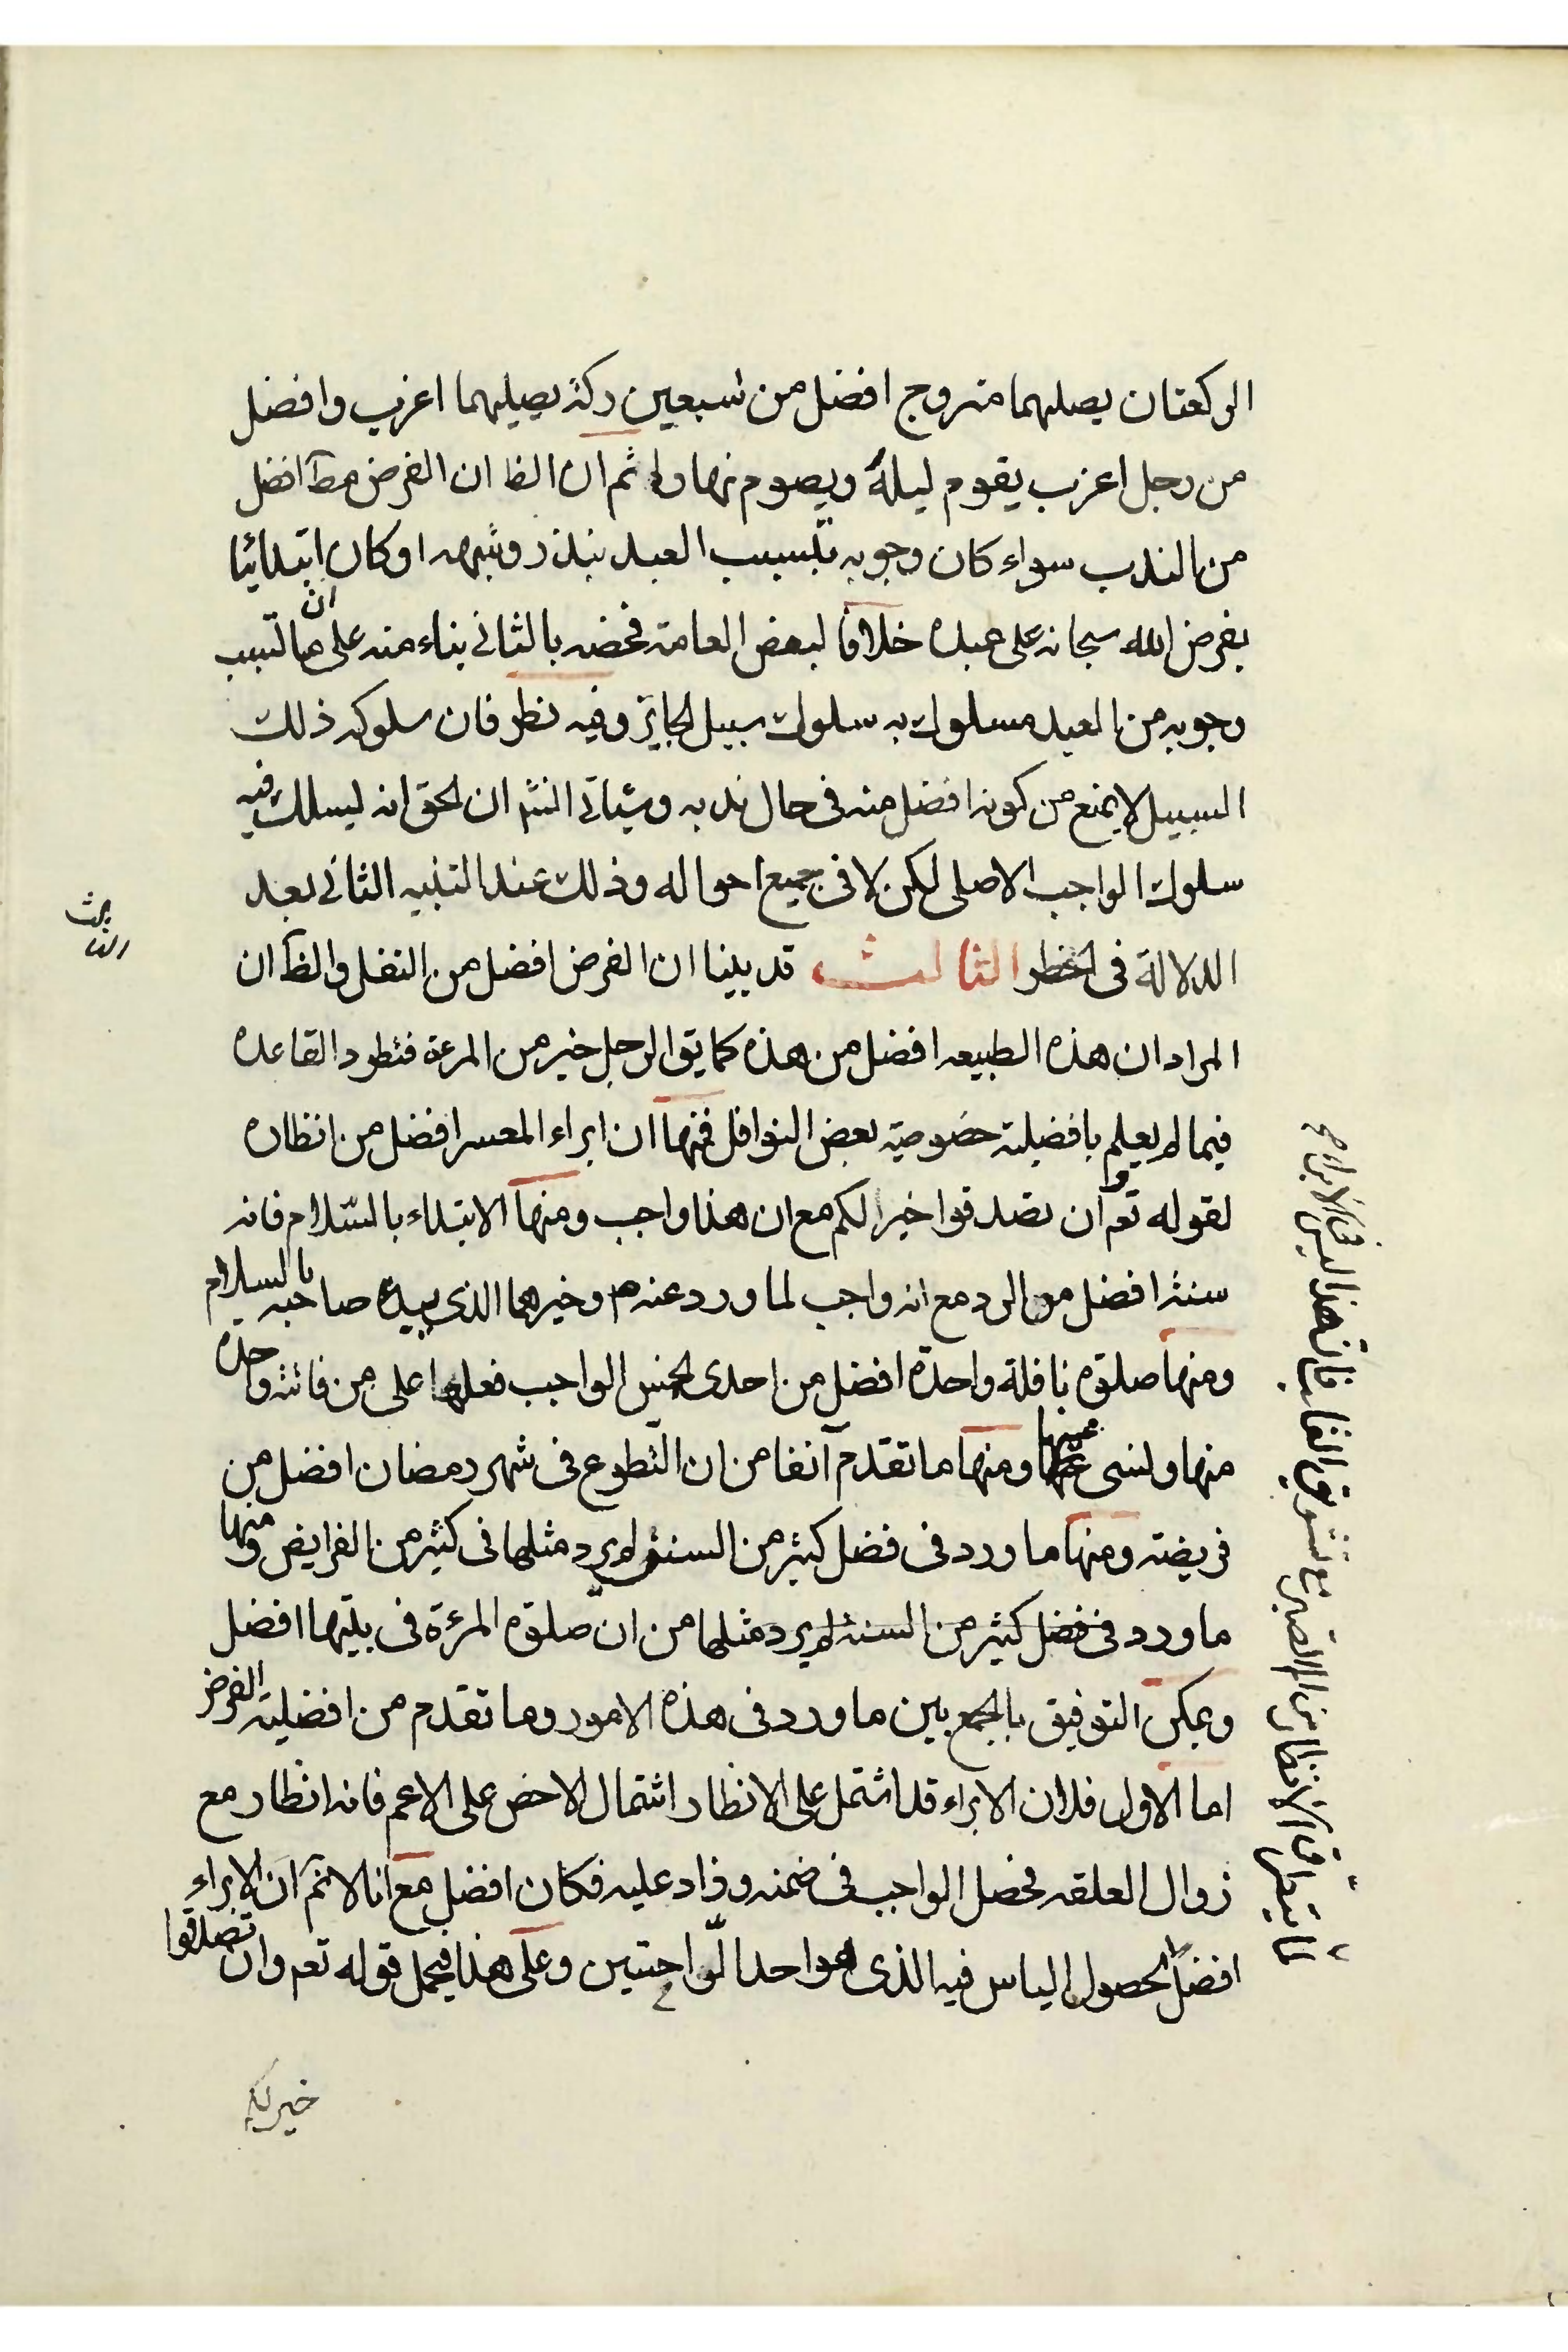 الركعتان يصليهما متزوج افضل من سبعين ركة يصيليهما اعزب وافضل
من رجل اعزب يقوم ليله ويصوم نهاره ثم ان الظ ان الفرض مطآ افضل
من الندب سواء كان وجوبه بتسبيب العبد بنذر وشبهه او كان ابتدائيا
بفرض الله سبحانه على عبده خلافا لبعض العامة فخصه بالثاني بناء منه على ان ما تسبب
وجوبه من العبد مسلوك به سلوك سبيل الجايز وفيه نظر فان سلوكه ذلك
السبيل لا يمنع من كونه افضل منه في حال ندبه وسيأتي انش ان الحق انه ليسلك فيه
سلوك الواجب الاصلي لكن لا في جميع احواله وذلك عند التنبيه الثاني بعد
الدلالة في الحظر الثالث قد بينا ان الفرض افضل من النفل والظ ان
المراد ان هذه الطبيعه افضل من هذه كما يق الرجل خير من المرءة فتطرد القاعده
فيما لم يعلم بافضلية خصوصية بعض النوافل فمنها ان ابراء المعسر افضل من انظاره
لقوله تعم وان تصدقوا خير لكم مع ان هذا واجب ومنها الابتداء بالسلام فانه
سنة افضل من الرد مع انه واجب لما ورد عنهم وخيرهما الذي يبدء صاحبه بالسلام
ومنها صلوة نافلة واحدة افضل من احدى الخمس الواجب فعلها على من فاتته واحدة
منها ونسي عينها ومنها ما تقدم آنفا من ان التطوع في شهر رمضان افضل من
فريضته ومنها ما ورد في فضل كثير من السنن لم يرد مثلها في كثير من الفرايض ومنها
ما ورد في فضل كثير من السنن لم يرد مثلها من ان صلوة المرءة في بيتها افضل
ويمكن التوفيق بالجمع بين ما ورد في هذه الامور وما تقدم من افضلية الفرض
اما الاول فلان الابراء قد اشتمل على الانظار اشتمال الاخص على الاعم فانه انظار مع
زوال العلقه فحصل الواجب في ضمنه وزاد عليه فكان افضل مع انا لا نم ان الابراء
افضل لحصول الياس فيه الذي هو احد الراحتين وعلى هذا فيحمل قوله تعم وان تصدقوا
خير لكم
بحث
الثالث
لما يترتب في الانظار من الم الصبر مع تشوق القلب فان هذا ليس في الابراء